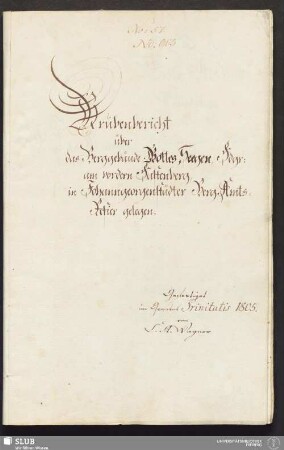 Grubenbericht
über
das Berggebäude Gottes Seegen Fdgr:
am vordern Fastenberg
in Johanngeorgenstädter Berg-Amts-
Refier gelegen.
Gefertiget
im Quartal Trinitatis 1805.
von
Wagner
SLUB
Wir führen Wissen.